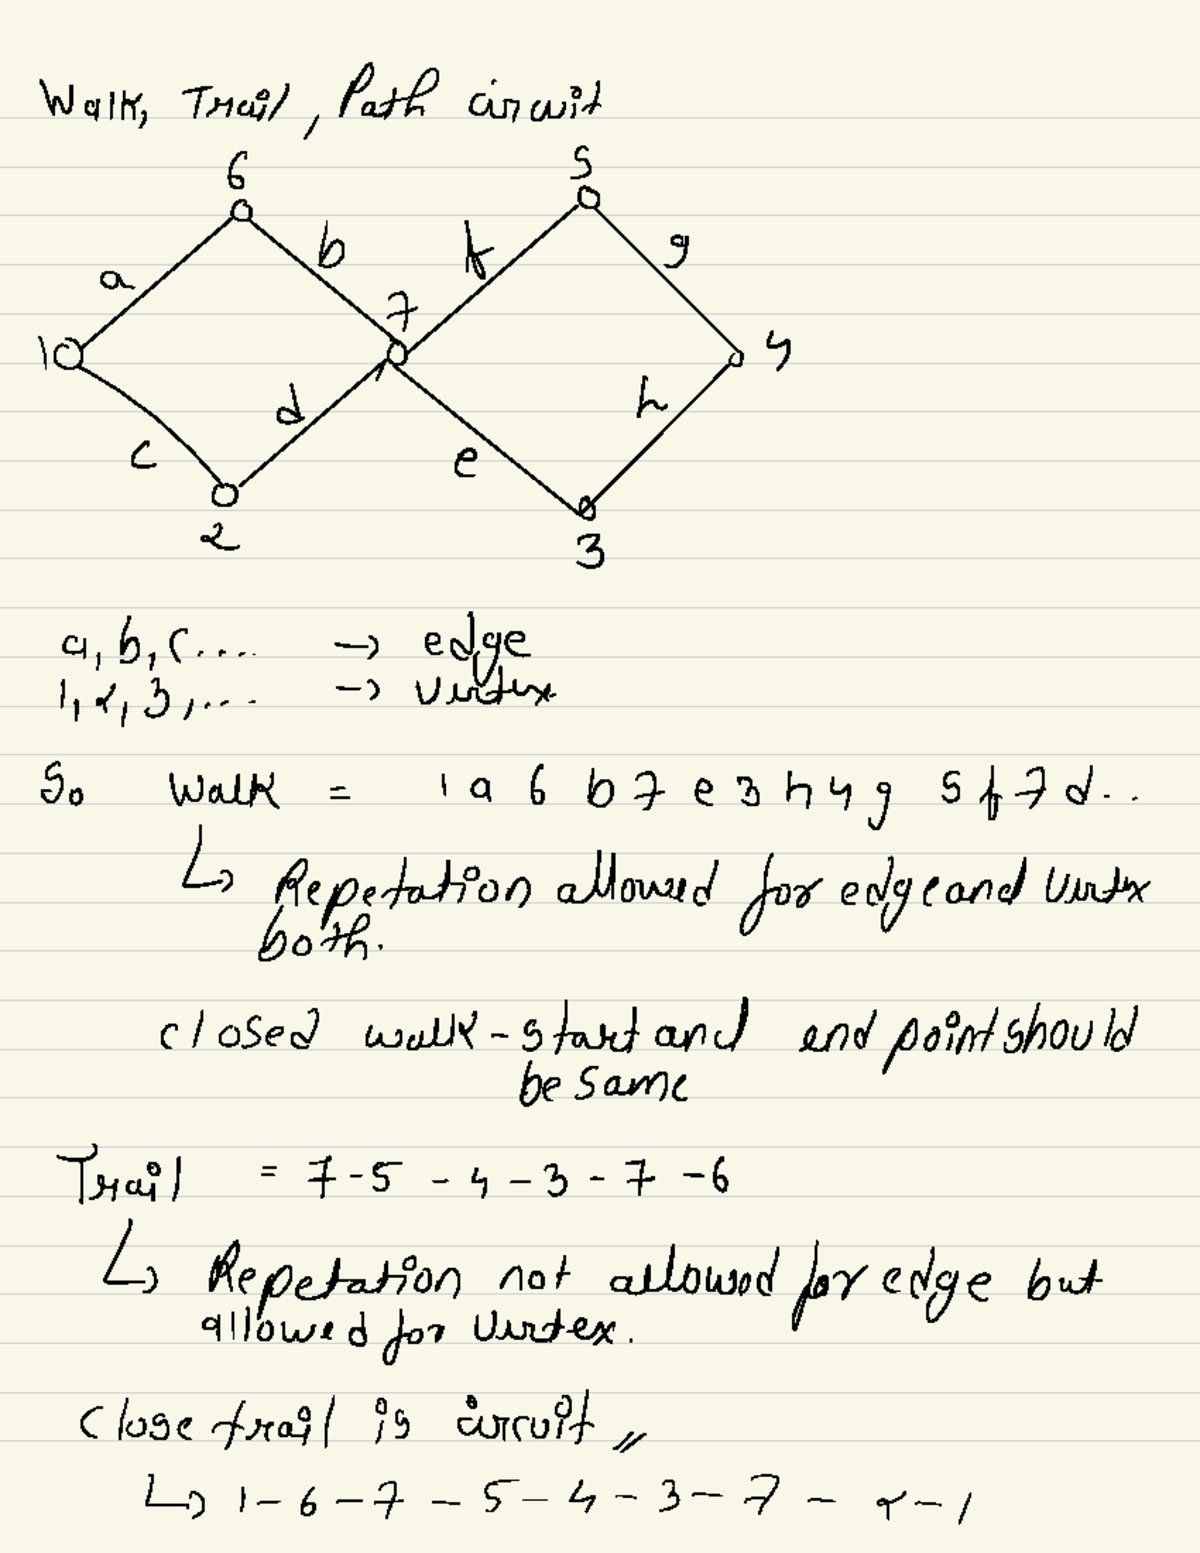 Walk, Trail, Path circuit
6
5
a
b
f
g
7
1
4
d
h
c
e
2
3
a, b, c.... → edge
1, 2, 3, ... → vertex
So Walk = 1 a 6 b 7 e 3 h 4 g 5 f 7 d..
↳ Repetation allowed for edge and vertex
both.
closed walk - start and end point should
be same
Trail = 7 - 5 - 4 - 3 - 7 - 6
↳ Repetation not allowed for edge but
allowed for vertex.
Close trail is circuit //
↳ 1 - 6 - 7 - 5 - 4 - 3 - 7 - 2 - 1